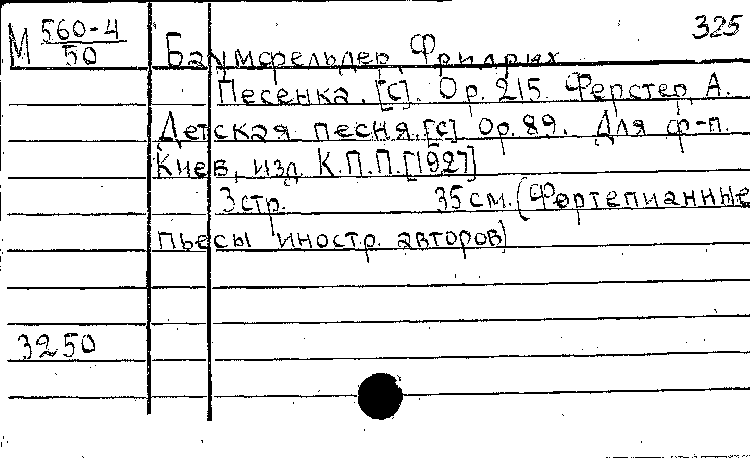 325
М 560-4/50
Баумфельдер, Фридрих
Песенка. [C]. Op. 215. Ферстер, А.
Детская песня. [C] Op. 89. Для ф-п.
Киев, изд. К.П.П. [1927]
3 стр. 35 см. (Фортепианные
пьесы иностр. авторов)
3250